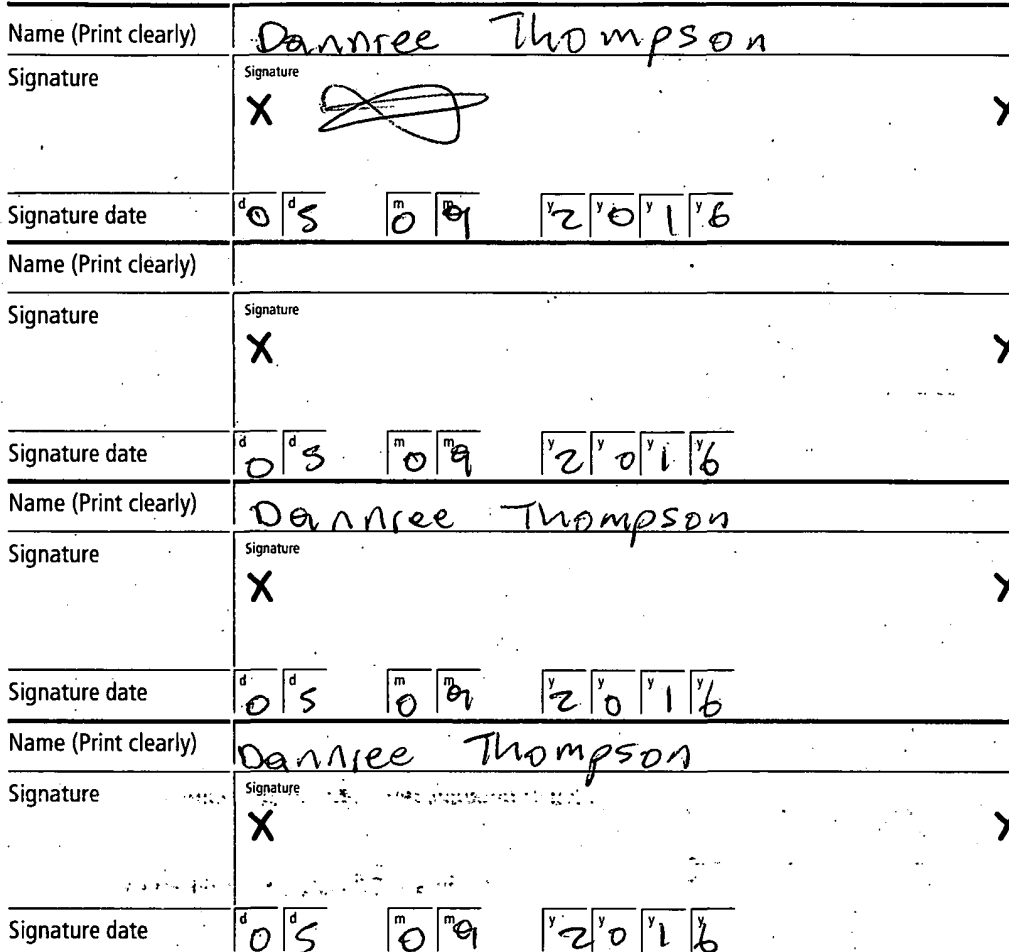 Name (Print clearly) Dannree Thompson
Signature Signature
X
Signature date d0 d5 m0 m9 y2 y0 y1 y6
Name (Print clearly)
Signature Signature
X
Signature date d0 d5 m0 m9 y2 y0 y1 y6
Name (Print clearly) Dannree Thompson
Signature Signature
X
Signature date d0 d5 m0 m9 y2 y0 y1 y6
Name (Print clearly) Dannree Thompson
Signature Signature
X
Signature date d0 d5 m0 m9 y2 y0 y1 y6